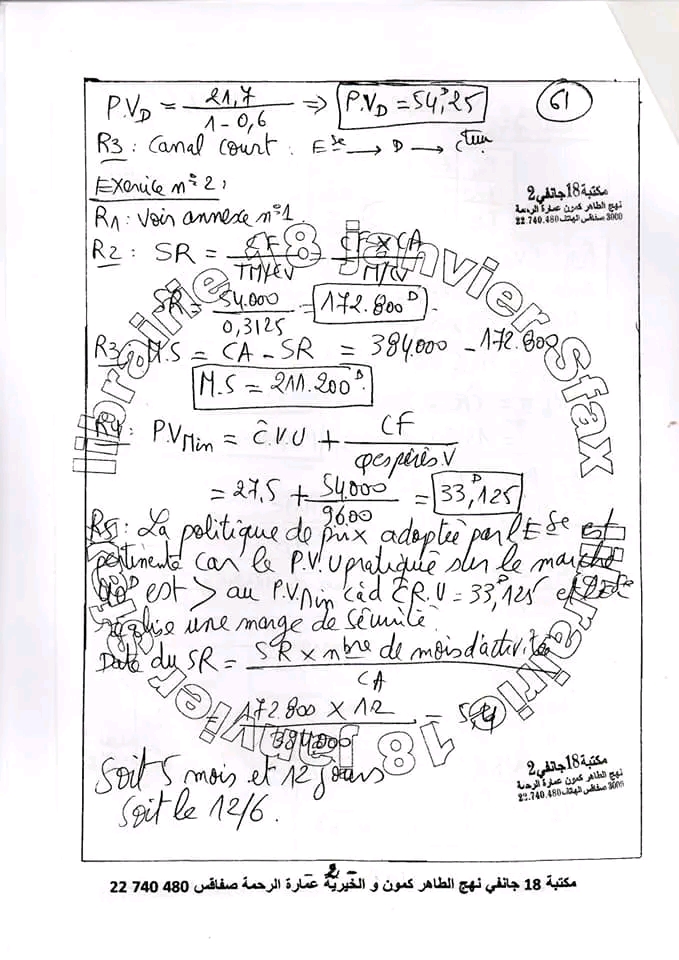 P.V_D = 21,7 / 1 - 0,6 => P.V_D = 54,D25
61
R3 : Canal court : E se → D → C teur
مكتبة 18 جانفي 2
نهج الطاهر كمون عمارة الرحمة
3000 صفاقس الهاتف 22.740.480
Exercice n° 2 :
R1 : Voir annexe n° 1.
R2 : SR = CF / TM/CV = CF x CA / M/CV
SR = 54.000 / 0,3125 = 172.800 D.
R3 : M.S = CA - SR = 384.000 - 172.800
M.S = 211.200 D.
R4 : P.V Min = C.V.U + CF / Q espérés.V
= 27,5 + 54.000 / 9600 = 33,D125
R5 : La politique de prix adoptée par l'E se est
pertinente car le P.V.U pratiqué sur le marché
40 D est > au P.V Min càd CR.U = 33,D125 et
réalise une marge de sécurité.
Date du SR = SR x nbre de mois d'activité / CA
= 172.800 X 12 / 384.000 = 5,4
Soit 5 mois et 12 jours
Soit le 12/6.
مكتبة 18 جانفي 2
نهج الطاهر كمون عمارة الرحمة
3000 صفاقس الهاتف 22.740.480
librairie 18 janvier Sfax
librairie 18 janvier Sfax
- 2 -
مكتبة 18 جانفي نهج الطاهر كمون و الخيرية عمارة الرحمة صفاقس 480 740 22